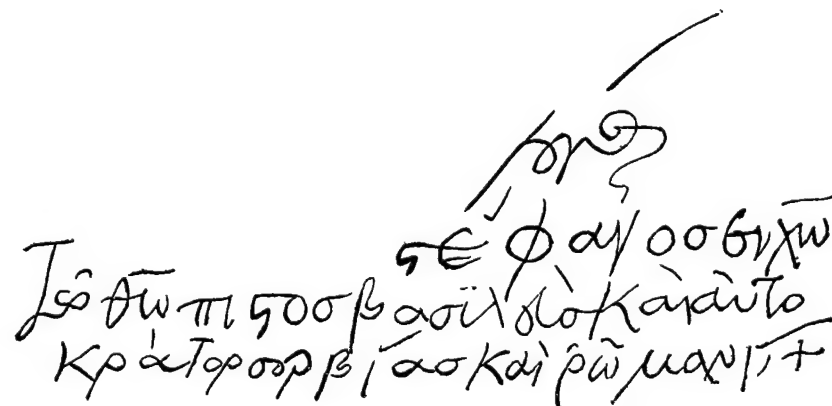 ϛέφανοσ ἐν χω̅
τῶ θω̅ πιϛοσ βασϊλεὺσ καὶ ἀυτο
κράτορ σερβίασ καὶ ρῶμανί +